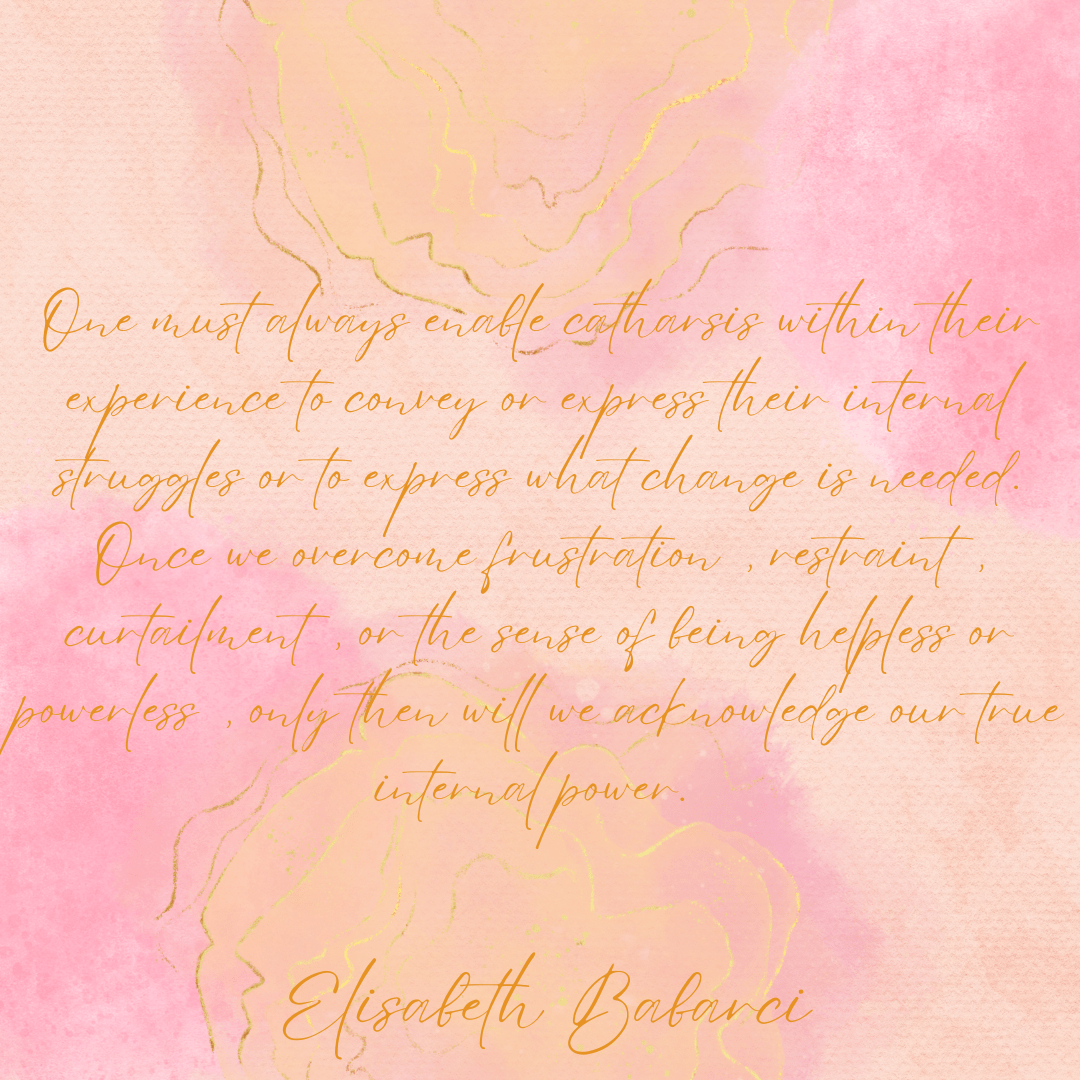 One must always enable catharsis within their
experience to convey or express their internal
struggles or to express what change is needed.
Once we overcome frustration , restraint ,
curtailment , or the sense of being helpless or
powerless , only then will we acknowledge our true
internal power.
Elisabeth Babarci